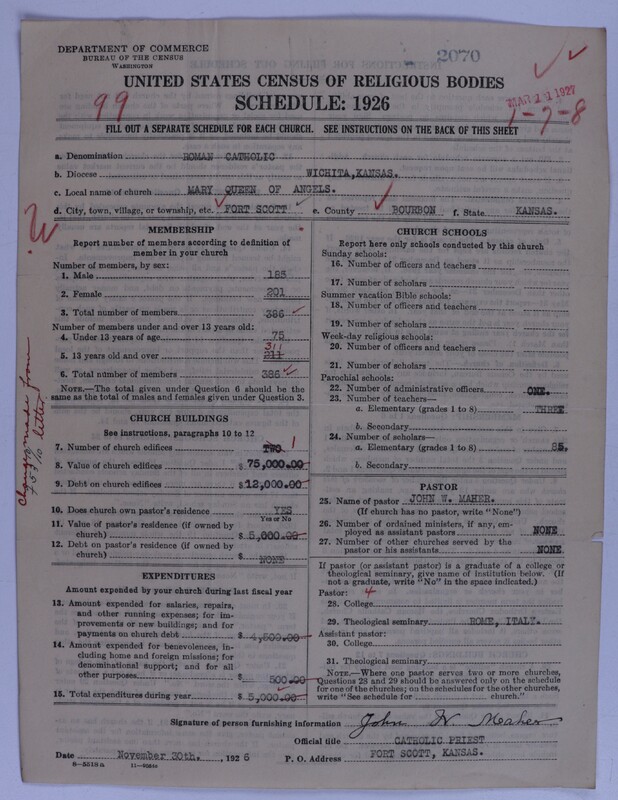 DEPARTMENT OF COMMERCE
BUREAU OF THE CENSUS
WASHINGTON
2070
UNITED STATES CENSUS OF RELIGIOUS BODIES
SCHEDULE: 1926
99
MAR 21 1927
1-7-8
FILL OUT A SEPARATE SCHEDULE FOR EACH CHURCH. SEE INSTRUCTIONS ON THE BACK OF THIS SHEET
a. Denomination ROMAN CATHOLIC
b. Diocese WICHITA,KANSAS.
c. Local name of church MARY QUEEN OF ANGELS.
d. City, town, village, or township, etc. FORT SCOTT e. County BOURBON f. State KANSAS.
MEMBERSHIP
Report number of members according to definition of
member in your church
Number of members, by sex:
1. Male 185
2. Female 201
3. Total number of members 386
Number of members under and over 13 years old:
4. Under 13 years of age 75
311
5. 13 years old and over 211
6. Total number of members 386
NOTE.—The total given under Question 6 should be
same as the total of males and females given under Question 3.
CHURCH BUILDINGS
See instructions, paragraphs 10 to 12
7. Number of church edifices TWO 1
8. Value of church edifices $75,000.00
9. Debt on church edifices $12,000.00
10. Does church own pastor's residence YES
Yes or No
11. Value of pastor's residence (if owned by
church) $ 5,000.00
12. Debt on pastor's residence (if owned by
church) $ NONE
EXPENDITURES
Amount expended by your church during last fiscal year
13. Amount expended for salaries, repairs,
and other running expenses; for im-
provements or new buildings; and for
payments on church debt $ 4,500.00
14. Amount expended for benevolences,
including home and foreign missions; for
denominational support; and for all
other purposes $ 500.00
15. Total expenditures during year $ 5,000.00
Change made from
letter
CHURCH SCHOOLS
Report here only schools conducted by this church
Sunday schools:
16. Number of officers and teachers
17. Number of scholars
Summer vacation Bible schools:
18. Number of officers and teachers
19. Number of scholars
Week-day religious schools:
20. Number of officers and teachers
21. Number of scholars
Parochial schools:
22. Number of administrative officers ONE.
23. Number of teachers—
a. Elementary (grades 1 to 8) THREE
b. Secondary
24. Number of scholars—
a. Elementary (grades 1 to 8) 85.
b. Secondary
PASTOR
25. Name of pastor JOHN W. MAHER.
(If church has no pastor, write "None")
26. Number of ordained ministers, if any, em-
ployed as assistant pastors NONE
27. Number of other churches served by the
pastor or his assistants NONE.
If pastor (or assistant pastor) is a graduate of a college or
theological seminary, give name of institution below. (If
not a graduate, write "No" in the space indicated.)
Pastor: 4
28. College
29. Theological seminary ROME, ITALY.
Assistant pastor:
30. College
31. Theological seminary
NOTE.—Where one pastor serves two or more churches,
Questions 28 and 29 should be answered only on the schedule
for one of the churches; on the schedules for the other churches,
write "See schedule for church."
Signature of person furnishing information John W. Maher
Official title CATHOLIC PRIEST
Date November 30th. , 1926 P. O. Address FORT SCOTT, KANSAS.